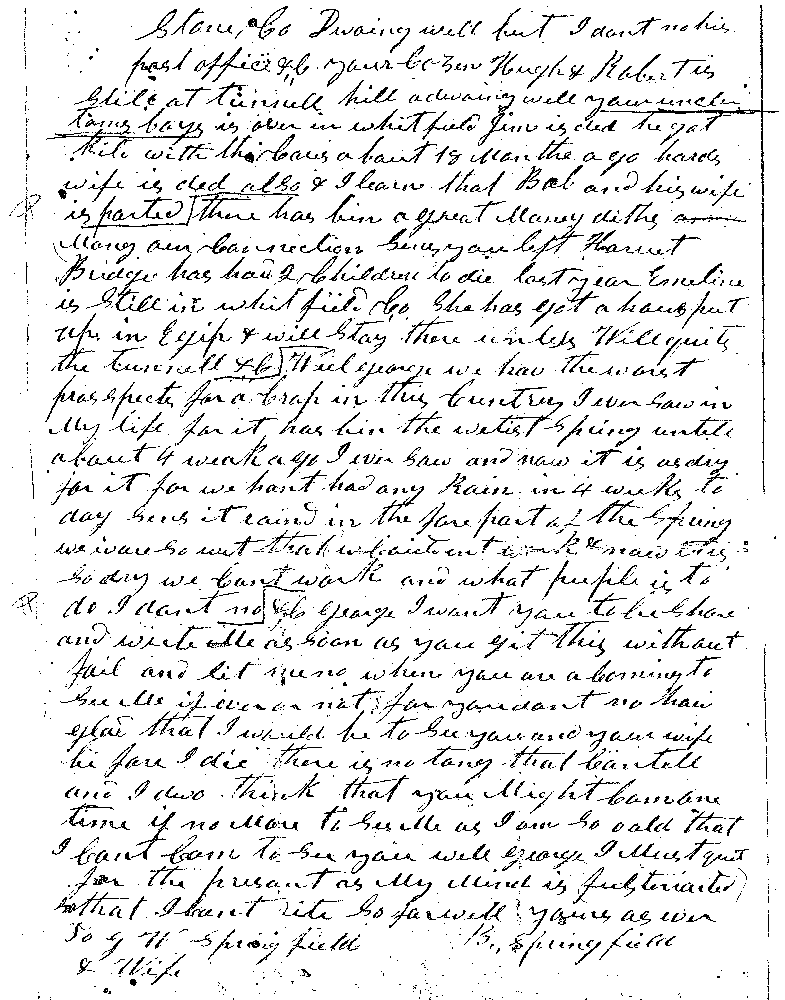 Stone, Co Dwoing well but I dont no his
post office &c your Cozen Hugh & Robert is
Still at tunnell hill adwoing well your uncle
toms boys is over in whitfield Jim is ded he got
kild with the Cars about 18 Months ago hards
wife is ded also & I learn that Bob and his wife
is parted there has bin a great Maney deths
Mong our Connection Sens you left Harriet
Bridge has had 2 Children to die last year Emeline
is Still in whitfield Co She has got a hous put
up in Egip & will Stay there unless Will quits
the tunnell &c Well george we hav the worst
prospects for a Crap in this Cuntrey I ever Saw in
My life for it has bin the wetist Spring untill
about 4 weak ago I ever Saw and now it is as dry
for it for we hant had any Rain in 4 weeks to
day Sens it raind in the fore part of the Spring
we ware So wet that we Coudent work & now it is
So dry we Cant work and what peeple is to
do I dont no &c george I want you to be Shore
and write Me as Soon as you git this without
fail and let me no when you are a Coming to
See Me if ever or not, for you dont no how
glad that I would be to See you and your wife
be fore I die there is no tong that Can tell
and I dwo think that you Might Com one
time if no More to See Me as I am So oald that
I Cant Com to See you well george I Must quit
for the present as My Mind is
So that I Cant rite So farwell yours as ever
To G W Springfield B., Springfield
& Wife